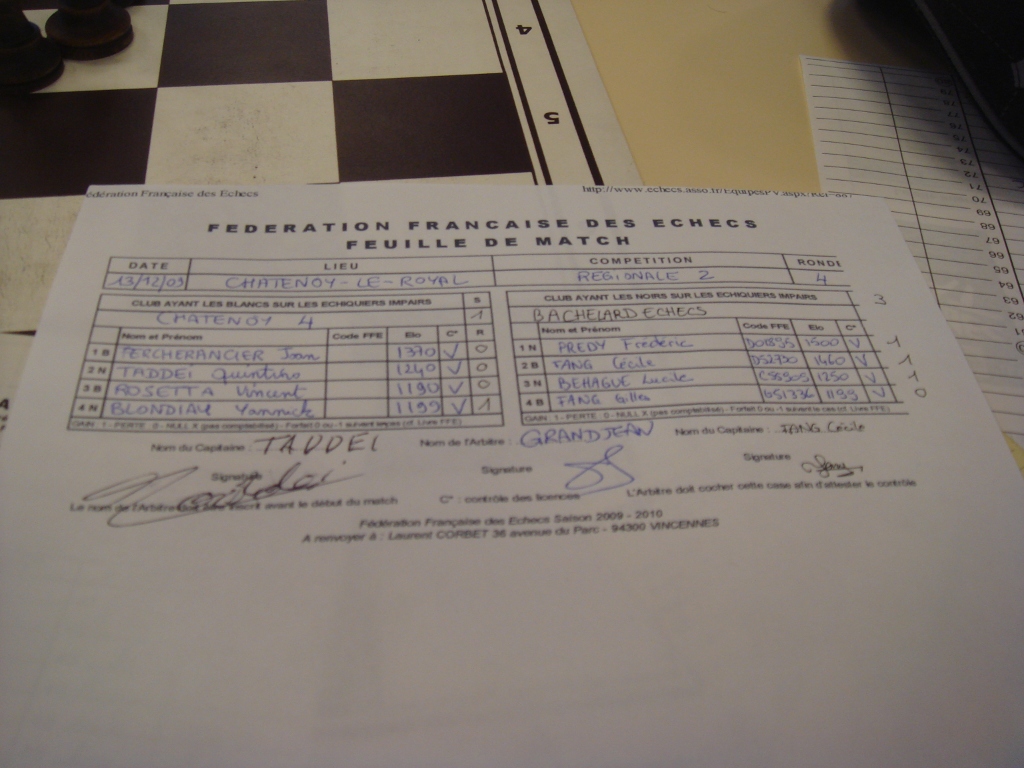 4
5
Fédération Française des Echecs
FEDERATION FRANCAISE DES ECHECS
FEUILLE DE MATCH
DATE LIEU COMPETITION RONDE
13/12/09 CHATENOY-LE-ROYAL REGIONALE 2 4
CLUB AYANT LES BLANCS SUR LES ECHIQUIERS IMPAIRS S
CHATENOY 4 1
Nom et Prénom Code FFE Elo C* R
1 B PERCHERANCIER Joan 1370 V 0
2 N TADDEI Quintino 1240 V 0
3 B ROSETTA Vincent 1190 V 0
4 N BLONDIAU Yannick 1199 V 1
CLUB AYANT LES NOIRS SUR LES ECHIQUIERS IMPAIRS 3
BACHELARD ECHECS
Nom et Prénom Code FFE Elo C*
1 N PREDY Frédéric 1500 V 1
2 B TANG Cécile D52750 1460 V 1
3 N BEHAGUE Lucile C58505 1250 V 1
4 B TANG Gilles 1199 V 0
GAIN : 1 - PERTE : 0 - NULL X (pas comptabilisé) - Forfait 0 ou -1 suivant le cas (cf. Livre FFE)
GAIN : 1 - PERTE : 0 - NULL X (pas comptabilisé) - Forfait 0 ou -1 suivant le cas (cf. Livre FFE)
Nom du Capitaine : TADDEI Nom de l'Arbitre : GRANDJEAN Nom du Capitaine : TANG Cécile
Signature Signature Signature
Le nom de l'Arbitre doit être inscrit avant le début du match C* : contrôle des licences L'Arbitre doit cocher cette case afin d'attester le contrôle
Fédération Française des Echecs Saison 2009 - 2010
A renvoyer à : Laurent CORBET 36 avenue du Parc - 94300 VINCENNES